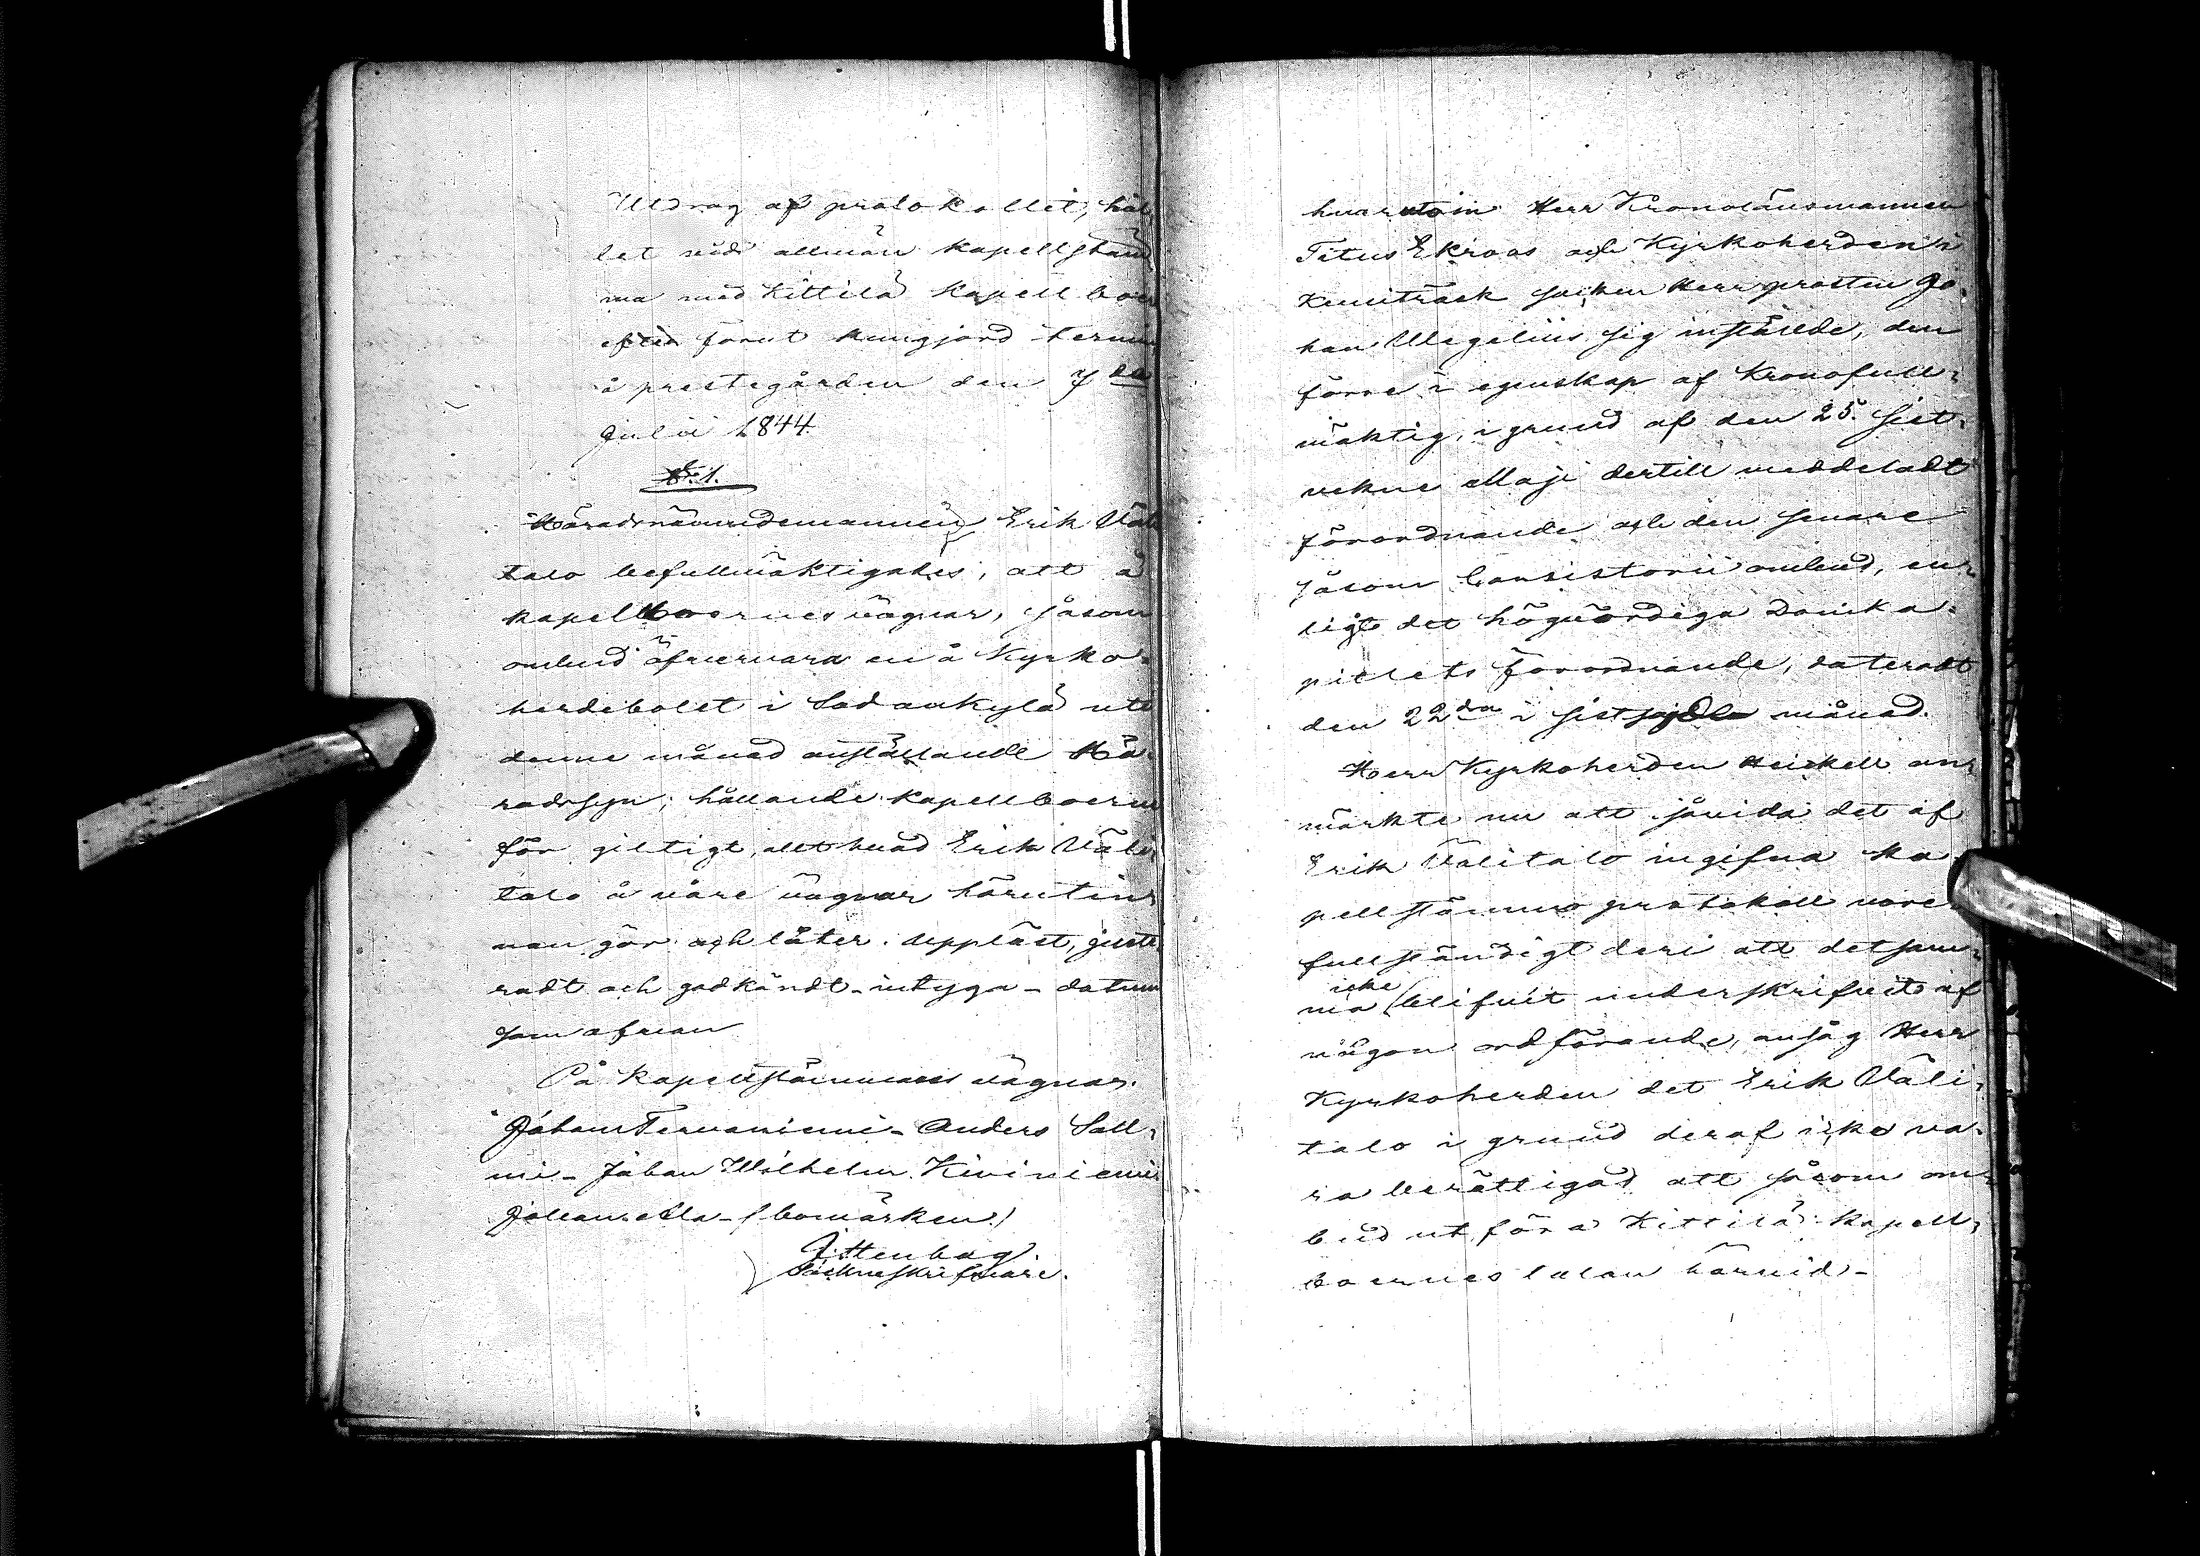 Utdrag af protokollet, hål
let vid allmän kapellstäm
ma med Kittilä Kapellboer
efter förut kungjord termin
å prestegården den 7de
Julii 1844.
§.1.
Häradsnämndemannen Erik Väli
talo befullmäktigades, att å
kapellboernes vägnar, såsom
ombud öfvervara en å Kyrko-
herdebolet i Sodankylä uti
denne månad anställande Hä-
radssyn; hållande kapellboerne
för giltigt, allt hvad Erik Väli
talo å våre vägnar härutin-
nan gör och låter. Uppläst, juste
radt och godkändt - intyga - datum
som ofvan
På Kapellstämmans vägnar.
Johan Tervaniemi - Anders Salli-
ni - Johan Wilhelm Kiviniemi
Johan Alla - (bomärken)
J. Stenbag.
Sockneskrifvare.
hvarutom Herr Kronolänsmannen
Titus Ekroos och Kyrkoherden i
Kemiträsk socken Herr prosten Jo-
han Wegelius sig inställde, den
förre i egenskap af Kronofull-
mäktig, i grund af den 25. sist-
vekne Maji dertill meddeladt
förordnande och den senare
såsom Consistorii ombud, en-
ligt det högvördiga Domka-
pitlets förordnande, dateradt
den 22dra i sist månad.
Herr Kyrkoherden Heickell an-
märkte nu att såvida det af
Erik Välitalo ingifna Ka-
pellstämmo protokoll vore
fullständigt deri att detsam-
ma icke blifvit underskrifvit af
någon ordförande, ansåg Herr
Kyrkoherden det Erik Väli-
talo i grund deraf icke va-
ra berättigad att såsom om-
bud utföra Kittilä kapell-
boernes talan härvid. -